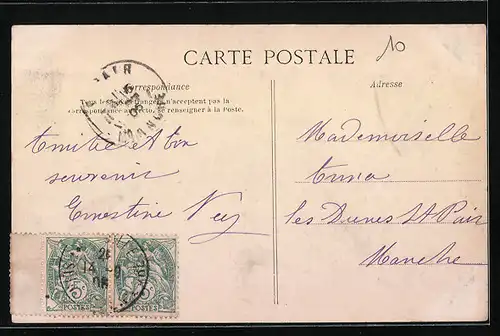 10
CARTE POSTALE
Correspondance
Tous les pays étrangers n'acceptent pas la
correspondance au recto. Se renseigner à la Poste.
Adresse
Amitié et bon
souvenir
Ernestine
Mademoiselle
les Dunes St Pair
Manche
5 5
POSTES POSTES